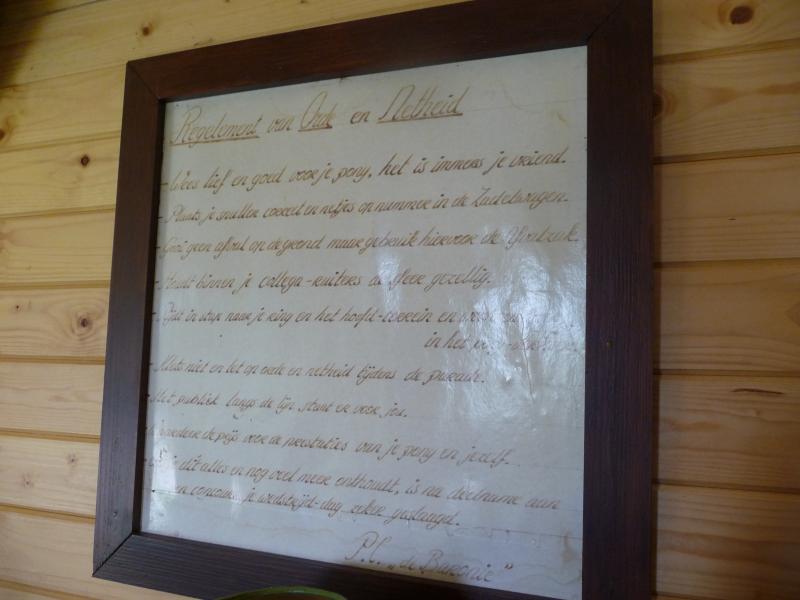 Regelement van Orde en Netheid
- Wees lief en goed voor je pony, het is immers je vriend.
- Plaats je spullen correct en netjes op nummer in de Zadelwagen.
- Gooi geen afval op de grond maar gebruik hiervoor de Afvalzak.
- Houdt binnen je collega-ruiters de sfeer gezellig.
- Rijdt in stap naar je ring en het hoofd-terrein en
in het
- Klets niet en let op orde en netheid tijdens de parade.
- Het publiek langs de lijn, staat er voor jou.
- de prijs voor de prestaties van je pony en jezelf.
- dit alles en nog veel meer onthoudt, is na deelname aan
een concours je wedstrijd-dag zeker geslaagd.
P.C. „de Baronie"